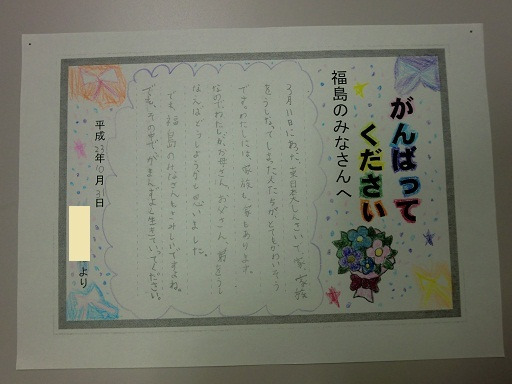 がんばって
ください
福島のみなさんへ
3月11日にあった、東日大しんさいで、家、家族
をうしなってしまった人たちが、とてもかわいそう
です。わたしには、家族も、家もあります。
なのでわたしがお母さん、お父さん、弟をうし
なったらどうしようかと思いました。
でも、福島のみなさんもさみしいですよね。
でも、その中でがまんづよく生きていてください。
平成23年10月31日
より